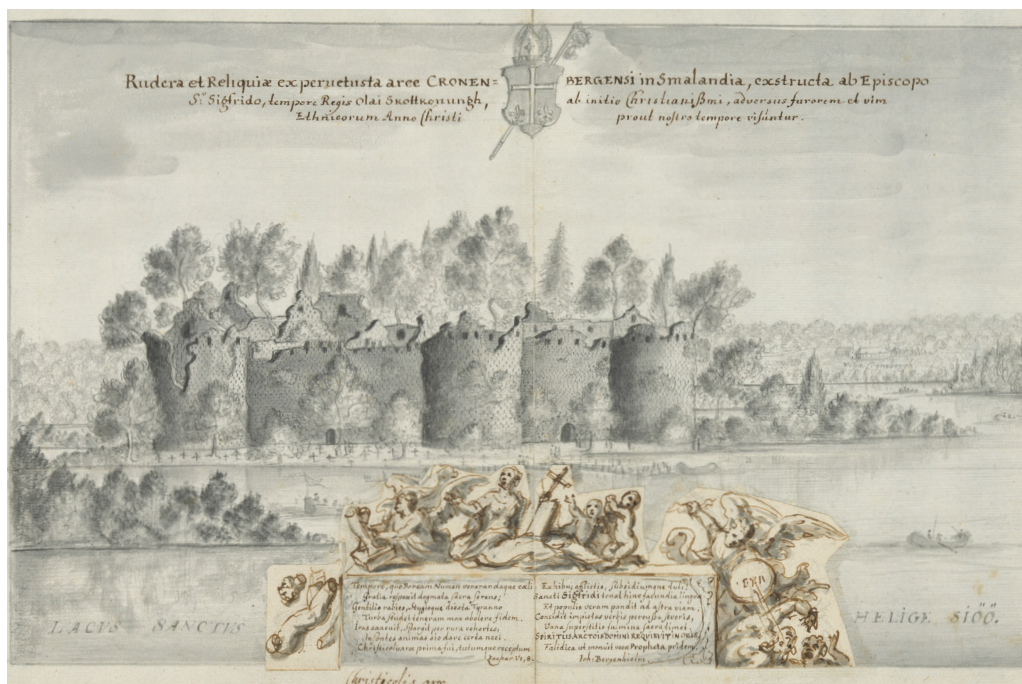 Rudera et Reliquiæ ex peruetusta arce CRONEN= BERGENSI in Smalandia, exstructa ab Episcopo
S.^to Sigfrido, tempore Regis Olai Skottkonungh, ab initio Christianißmi, adversus furorem et vim
Ethnicorum Anno Christi prout nostro tempore visuntur.
Tempore, quo Boream Numen venerandaque cæli
Gratia
dogmata sacra serens;
Gentilis rabies, Stygioque
Tyranno
Turba studet teneram mox abolere fidem.
per rura cohortes,
Insontes animas
dare certa neci.
prima fui, tutumque receptum
Exhibui afflictis, subsidiumque tuli.
Sancti Sigfridi tonat hinc facundia linguæ
Et populis veram pandit ad astra viam.
Concidit impietas verbis percussa severis,
Vana superstitio
sacra timet
SPIRITUS ARCTOIS DOMINI REQUIEVIT IN ORIS
Fatidica ut monuit voce Propheta pridem.
Joh: Bergenhielm.
LACVS SANCTUS
HELIGE SIÖÖ.
Christicolis